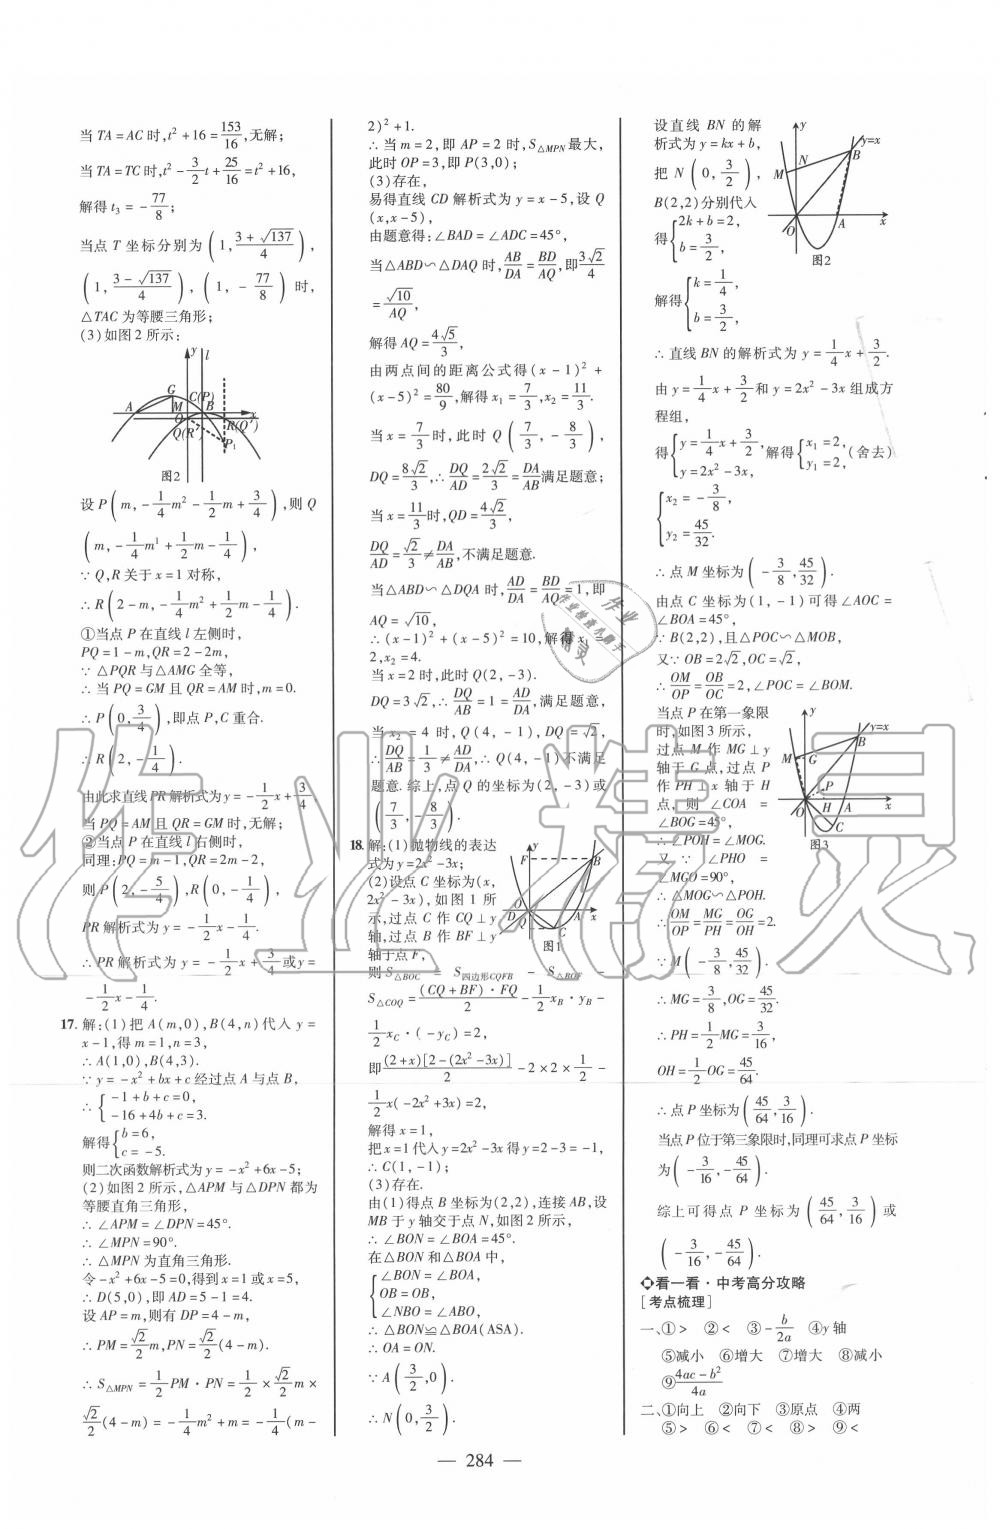 当 TA=AC 时,t²+16=153/16,无解;
当 TA=TC 时,t²-3/2t+25/16=t²+16,
解得 t₃=-77/8;
当点 T 坐标分别为(1,(3+√137)/4),
(1,(3-√137)/4),(1,-77/8)时,
△TAC 为等腰三角形;
(3)如图 2 所示:
图2
设 P(m,-1/4m²-1/2m+3/4),则 Q
(m,-1/4m¹+1/2m-1/4),
∵Q,R 关于 x=1 对称,
∴R(2-m,-1/4m²+1/2m-1/4).
①当点 P 在直线 l 左侧时,
PQ=1-m,QR=2-2m,
∵△PQR 与△AMG 全等,
∴当 PQ=GM 且 QR=AM 时,m=0.
∴P(0,3/4),即点 P,C 重合.
∴R(2,-1/4).
由此求直线 PR 解析式为 y=-1/2x+3/4
当 PQ=AM 且 QR=GM 时,无解;
②当点 P 在直线 l 右侧时,
同理:PQ=m-1,QR=2m-2,
则 P(2,-5/4),R(0,-1/4).
PR 解析式为 y=-1/2x-1/4.
∴PR 解析式为 y=-1/2x+3/4或 y=
-1/2x-1/4.
17. 解:(1)把 A(m,0),B(4,n)代入 y=
x-1,得 m=1,n=3,
∴A(1,0),B(4,3).
∵y=-x²+bx+c 经过点 A 与点 B,
∴{-1+b+c=0,
-16+4b+c=3.
解得{b=6,
c=-5.
则二次函数解析式为 y=-x²+6x-5;
(2)如图 2 所示,△APM 与△DPN 都为
等腰直角三角形,
∴∠APM=∠DPN=45°.
∴∠MPN=90°.
∴△MPN 为直角三角形.
令-x²+6x-5=0,得到 x=1 或 x=5.
∴D(5,0),即 AD=5-1=4.
设 AP=m,则有 DP=4-m,
∴PM=√2/2m,PN=√2/2(4-m).
∴S△MPN=1/2PM·PN=1/2×√2/2m×
√2/2(4-m)=-1/4m²+m=-1/4(m-
2)²+1.
∴当 m=2,即 AP=2 时,S△MPN最大,
此时 OP=3,即 P(3,0);
(3)存在,
易得直线 CD 解析式为 y=x-5,设 Q
(x,x-5),
由题意得:∠BAD=∠ADC=45°,
当△ABD∽△DAQ 时,AB/DA=BD/AQ,即3√2/4
=√10/AQ,
解得 AQ=4√5/3,
由两点间的距离公式得(x-1)²+
(x-5)²=80/9,解得 x₁=7/3,x₂=11/3.
当 x=7/3时,此时 Q(7/3,-8/3),
DQ=8√2/3,∴DQ/AD=2√2/3=DA/AB满足题意;
当 x=11/3时,QD=4√2/3,
DQ/AD=√2/3≠DA/AB,不满足题意.
当△ABD∽△DQA 时,AD/DA=BD/AQ=1,即
AQ=√10,
∴(x-1)²+(x-5)²=10,解得 x₁=
2,x₂=4.
当 x=2 时,此时 Q(2,-3).
DQ=3√2,DQ/AB=1=AD/DA,满足题意,
当 x₂=4 时,Q(4,-1),DQ=√2,
∴DQ/AB=1/3≠AD/DA,∴Q(4,-1)不满足
题意.综上,点 Q 的坐标为(2,-3)或
(7/3,-8/3).
18. 解:(1)抛物线的表达
式为 y=2x²-3x;
(2)设点 C 坐标为(x,
2x²-3x),如图 1 所
示,过点 C 作 CQ⊥y
轴,过点 B 作 BF⊥y
轴于点 F,
图1
则 S△BOC = S四边形CQFB - S△BOF -
S△COQ=(CQ+BF)·FQ/2-1/2x_B·y_B-
1/2x_C·(-y_C)=2,
即(2+x)[2-(2x²-3x)]/2-2×2×1/2-
1/2x(-2x²+3x)=2,
解得 x=1,
把 x=1 代入 y=2x²-3x 得 y=2-3=-1,
∴C(1,-1).
(3)存在.
由(1)得点 B 坐标为(2,2),连接 AB,设
MB 于 y 轴交于点 N,如图 2 所示,
∴∠BON=∠BOA=45°.
在△BON 和△BOA 中,
{∠BON=∠BOA,
OB=OB,
∠NBO=∠ABO,
∴△BON≌△BOA(ASA).
∴OA=ON.
∵A(3/2,0).
∴N(0,3/2).
设直线 BN 的解
析式为 y=kx+b,
把 N(0,3/2),
B(2,2)分别代入
得{2k+b=2,
b=3/2,
图2
解得{k=1/4,
b=3/2,
∴直线 BN 的解析式为 y=1/4x+3/2.
由 y=1/4x+3/2和 y=2x²-3x 组成方
程组,
得{y=1/4x+3/2,
y=2x²-3x,解得{x₁=2,
y₁=2,(舍去)
{x₂=-3/8,
y₂=45/32.
∴点 M 坐标为(-3/8,45/32).
由点 C 坐标为(1,-1)可得∠AOC=
∠BOA=45°,
∵B(2,2),且△POC∽△MOB,
又∵OB=2√2,OC=√2,
∴OM/OP=OB/OC=2,∠POC=∠BOM.
当点 P 在第一象限
时,如图 3 所示,
过点 M 作 MG⊥y
轴于 G 点,过点 P
作 PH⊥x 轴于 H
点,则∠COA=
∠BOG=45°,
∴∠POH=∠MOG.
又∵∠PHO=
∠MGO=90°,
图3
∴△MOG∽△POH.
∴OM/OP=MG/PH=OG/OH=2.
∵M(-3/8,45/32).
∴MG=3/8,OG=45/32.
∴PH=1/2MG=3/16,
OH=1/2OG=45/64.
∴点 P 坐标为(45/64,3/16).
当点 P 位于第三象限时,同理可求点 P 坐标
为(-3/16,-45/64).
综上可得点 P 坐标为(45/64,3/16)或
(-3/16,-45/64).
看一看·中考高分攻略
[考点梳理]
一、①> ②< ③-b/2a ④y 轴
⑤减小 ⑥增大 ⑦增大 ⑧减小
⑨(4ac-b²)/4a
二、①向上 ②向下 ③原点 ④两
⑤> ⑥< ⑦> ⑧> ⑨<
— 284 —
作业精灵